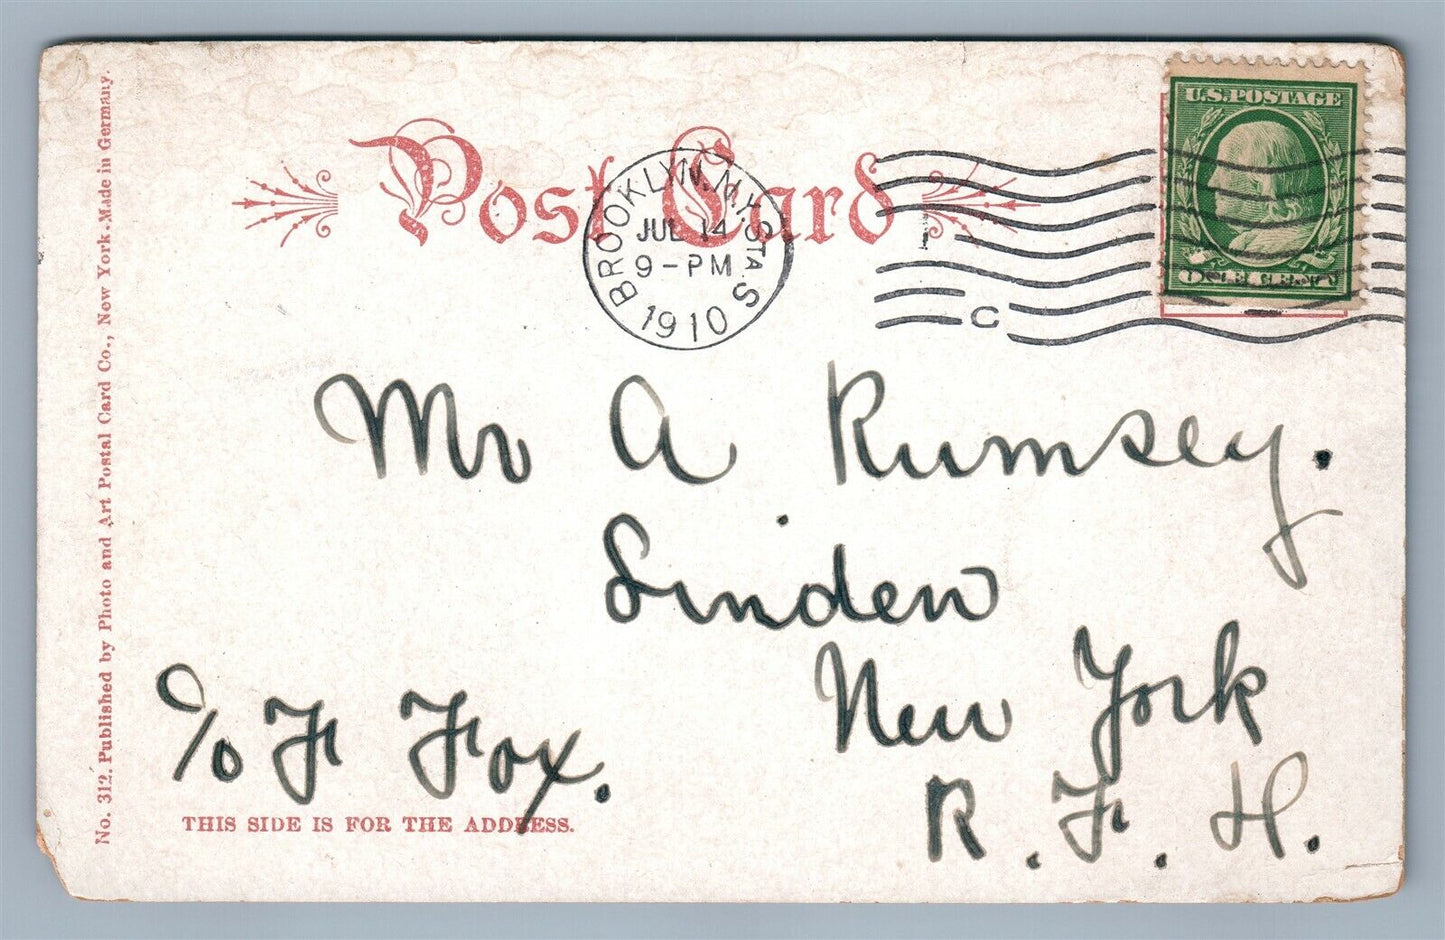 Post Card
BROOKLYN, N.Y. STA. S
JUL 14
9-PM
1910
C
U.S. POSTAGE
ONE CENT
Mr A Rumsey.
Linden
New York
c/o F Fox.
R. F. H.
THIS SIDE IS FOR THE ADDRESS.
No. 312. Published by Photo and Art Postal Card Co., New York. Made in Germany.